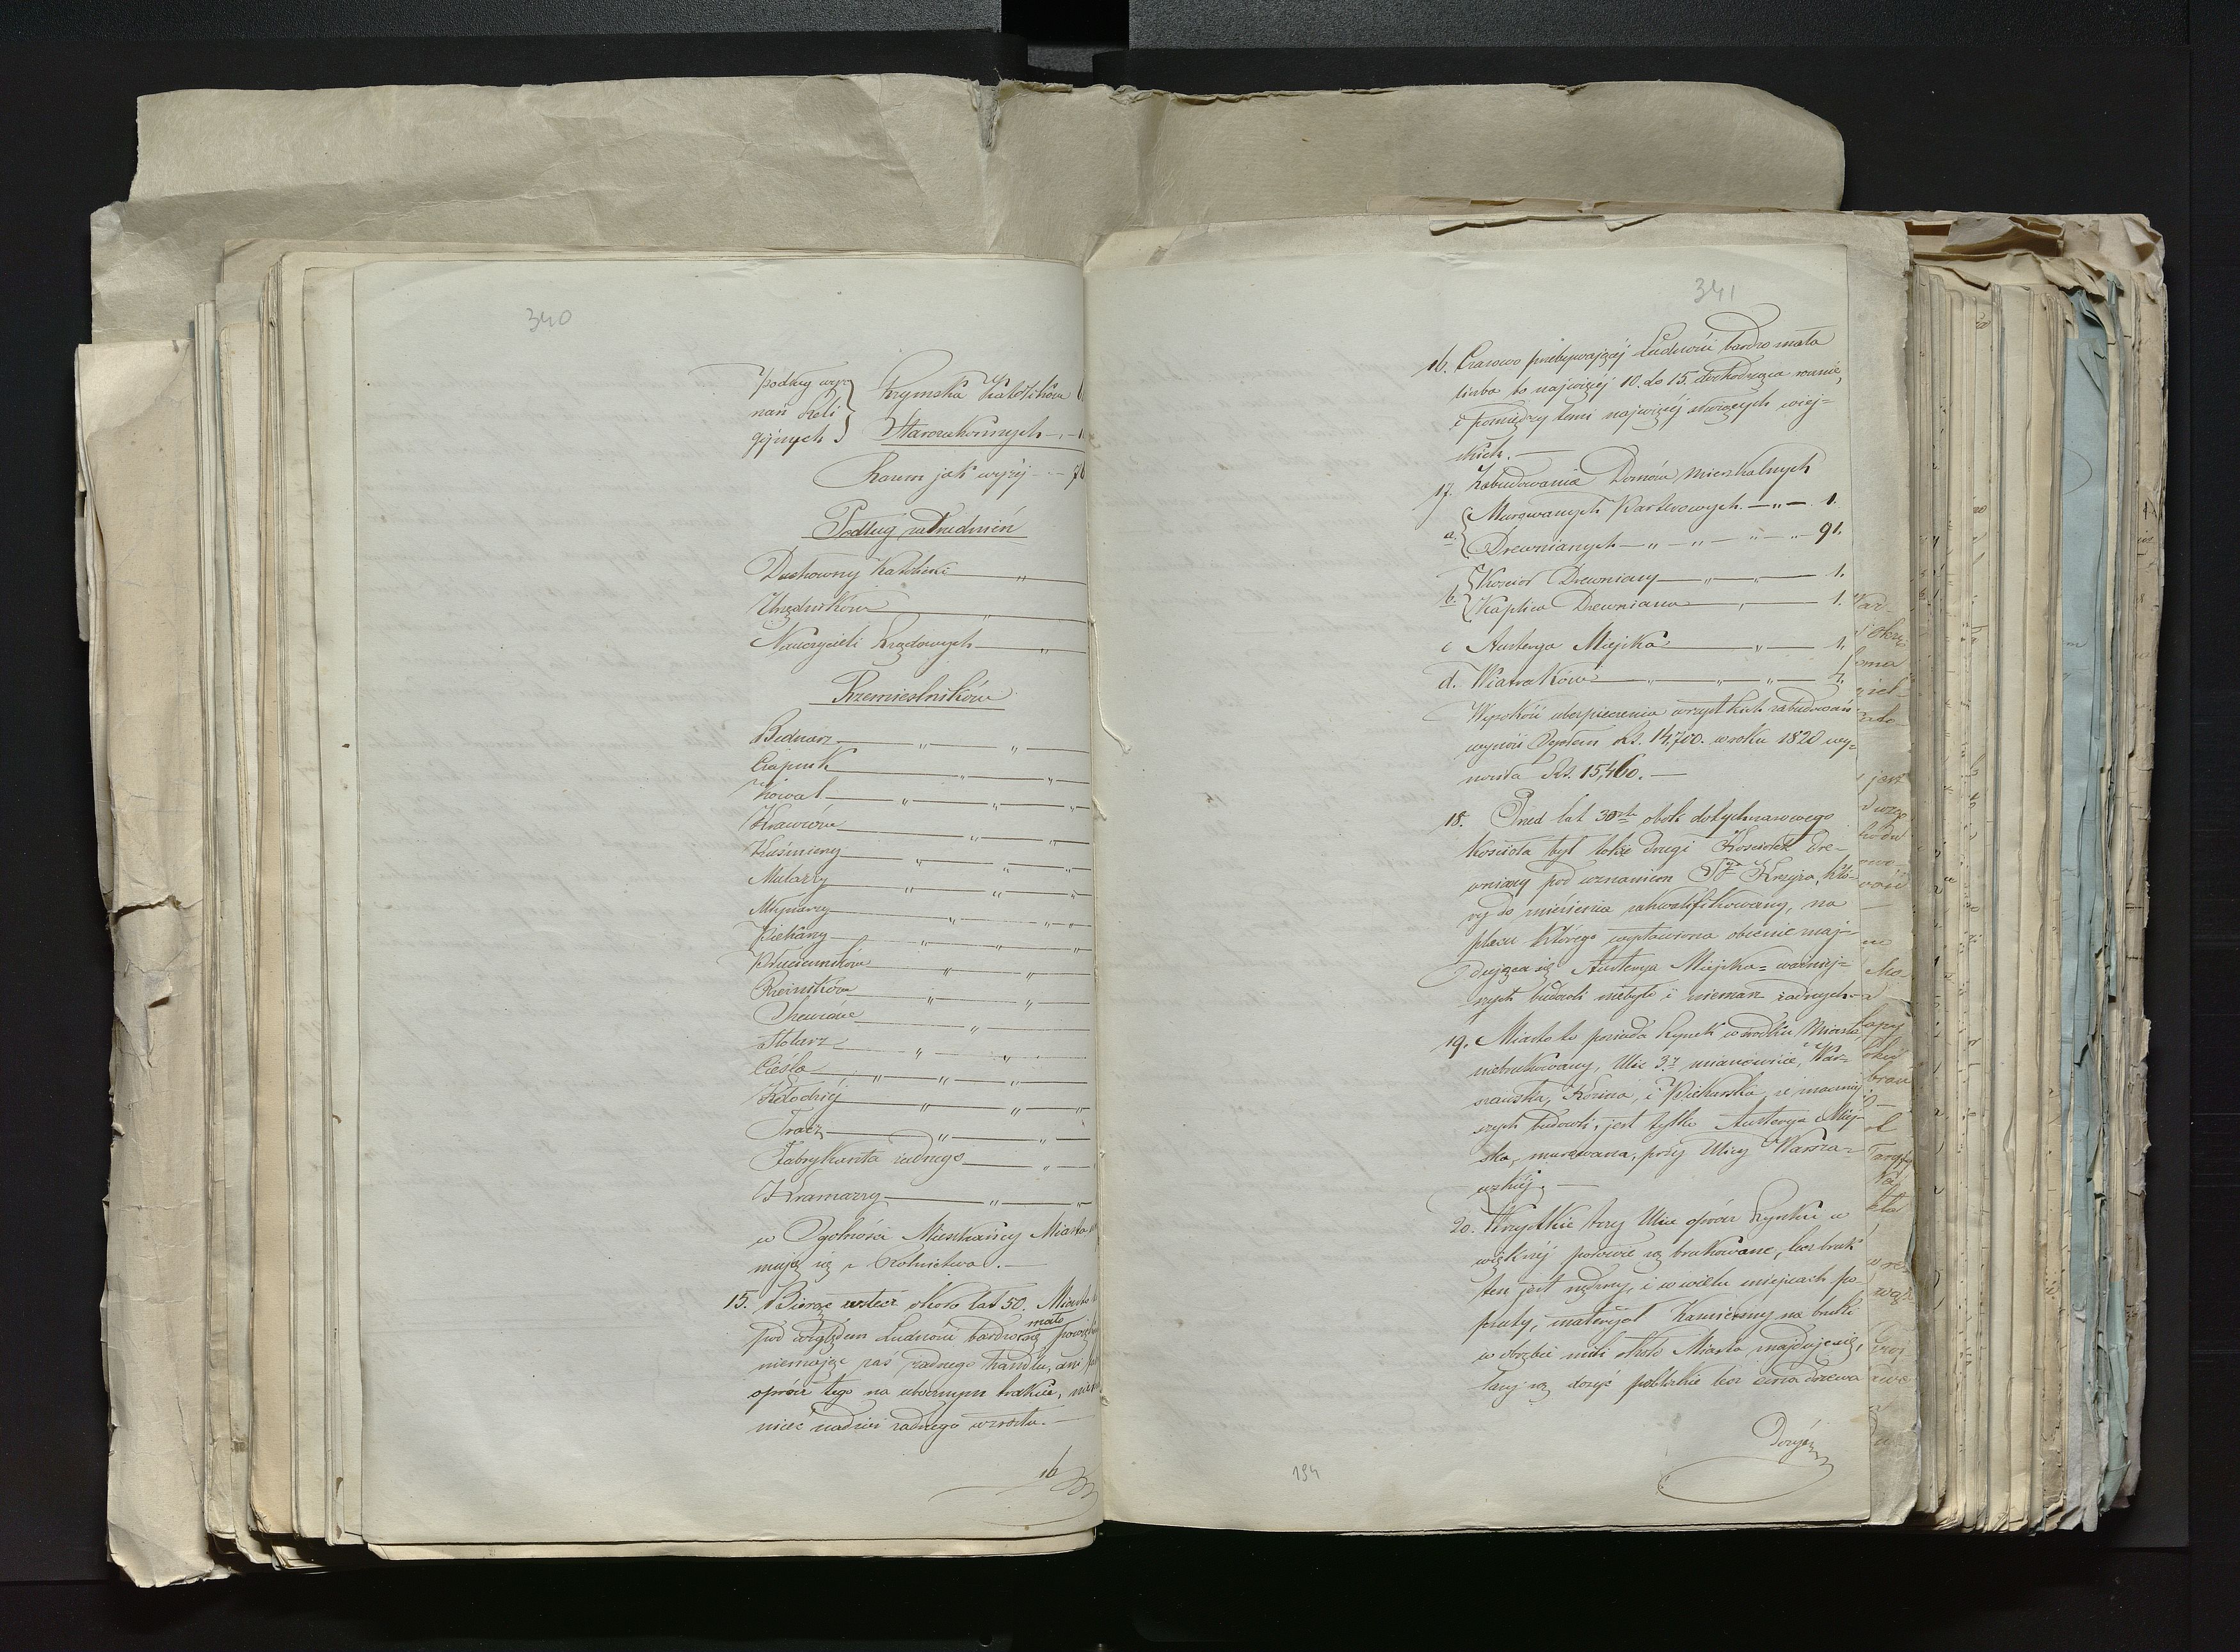 340
Podług wyz
nań Reli
gijnych
Rzymsko Katolików
Starozakonnych
Razem jak wyżej
Podług zatrudnień
Duchowny Katolicki
Urzędników
Nauczycieli Rządowych
Rzemieślników
Bednarz
Czapnik
Kowal
Krawców
Kuśnierzy
Mularzy
Młynarzy
Piekarzy
Rzeźników
Szewców
Stolarz
Cieśla
Kołodziej
Tracz
Fabrykanta żadnego
Kramarzy
w Ogólności Mieszkańcy Miasta
mują się z Rolnictwa. —
15. Biorąc wstecz około lat 50. Miasto
pod względem Ludności bardzo mało się
niemając zaś żadnego handlu, ani
oprócz tego na ubocznym trakcie,
mieć nadziei żadnego wzrostu. —
16
341
16. Czasowo przebywającéj Ludności bardzo mała
liczba bo najwięcéj 10. do 15. dochodząca rocznie,
i pomiędzy temi najwięcéj służących wiej=
skich. —
17. Zabudowania Domów Mieszkalnych
a. Murowanych Parterowych — 1.
Drewnianych — 91.
b. Kościół Drewniany — 1.
Kaplica Drewniana — 1.
c Austerya Miejska — 1.
d. Wiatraków — 4.
Wysokość ubezpieczenia wszystkich zabudowań
wynosi Ogółem Rs. 14,700. w roku 1820 wy=
nosiła Rs. 15,460. —
18. Przed lat 30stu obok dotychczasowego
Kościoła był także drugi Kościółek dre=
wniany pod wezwaniem Sgo Krzyża, któ=
ry do zniesienia zakwalifikowany, na
placu którego wystawiona obecnie znaj=
dująca się Austerya Miejska= ważniej=
szych budowli niebyło i niemasz żadnych—
19. Miasto to posiada Rynek w środku Miasta,
niebrukowany, Ulic 3y mianowicie, War=
szawska, Kozina, i Piekarska, z
szych budowli, jest tylko Austerya Miej=
ska, murowana, przy Ulicy Warsza=
wskiéj. —
20. Wszystkie trzy Ulice oprócz Rynku w
większéj połowie są brukowane, lecz bruk
ten jest nędzny, i w wielu miejscach po=
psuty, materyał Kamienny na bruki
w obrębie mili około Miasta znajduje się,
lasy są dosyć pobliskie lecz cena drzewa
Dosyć
194